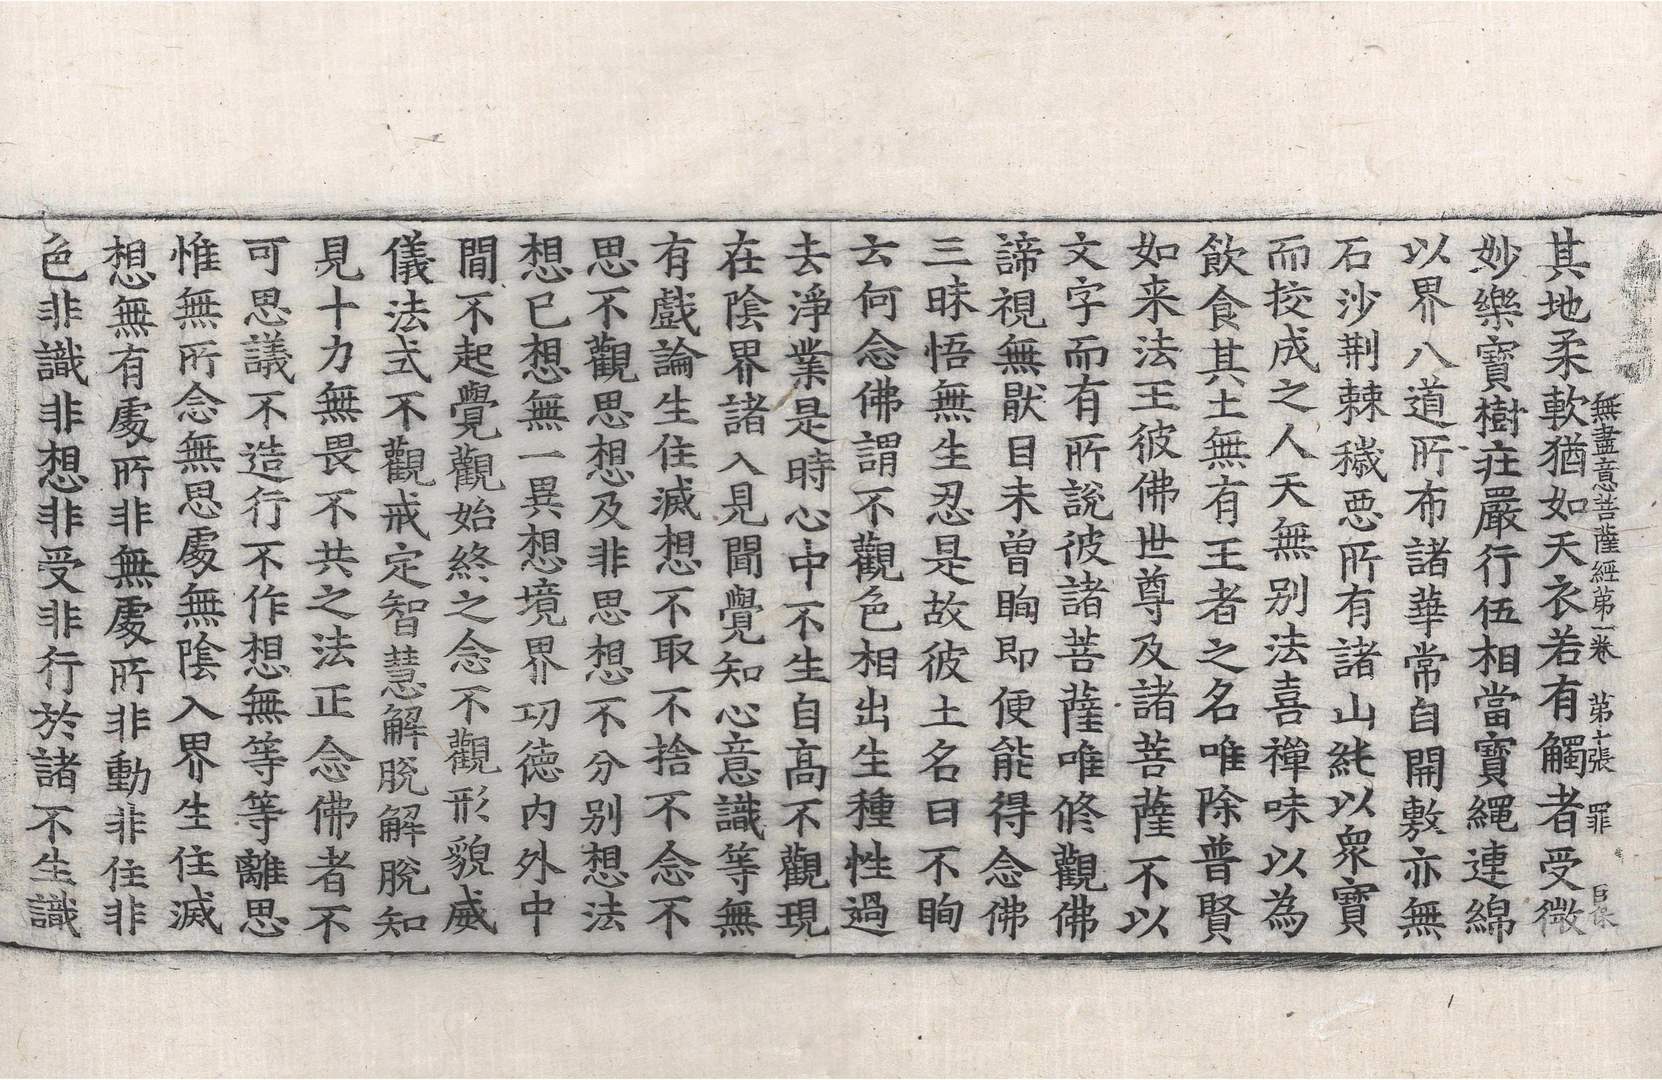 無盡意菩薩經第一卷 第十張 罪
其地柔軟猶如天衣若有觸者受微
妙樂寶樹莊嚴行伍相當寶繩連綿
以界八道所布諸華常自開敷亦無
石沙荆棘穢惡所有諸山純以衆寶
而挍成之人天無别法喜禪味以為
飲食其土無有王者之名唯除普賢
如来法王彼佛世尊及諸菩薩不以
文字而有所說彼諸菩薩唯修觀佛
諦視無猒目未曾眴即便能得念佛
三昧悟無生忍是故彼土名曰不眴
云何念佛謂不觀色相出生種性過
去淨業是時心中不生自高不觀現
在陰界諸入見聞覺知心意識等無
有戲論生住滅想不取不捨不念不
思不觀思想及非思想不分别想法
想已想無一異想境界功德内外中
間不起覺觀始終之念不觀形貌威
儀法式不觀戒定智慧解脫解脫知
見十力無畏不共之法正念佛者不
可思議不造行不作想無等等離思
惟無所念無思處無陰入界生住滅
想無有處所非無處所非動非住非
色非識非想非受非行於諸不生識